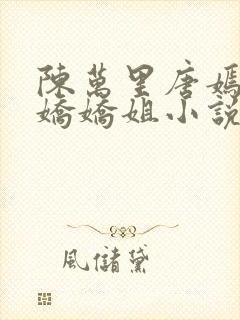 陳萬里唐嫣
嬌嬌姐小說
風儲黛